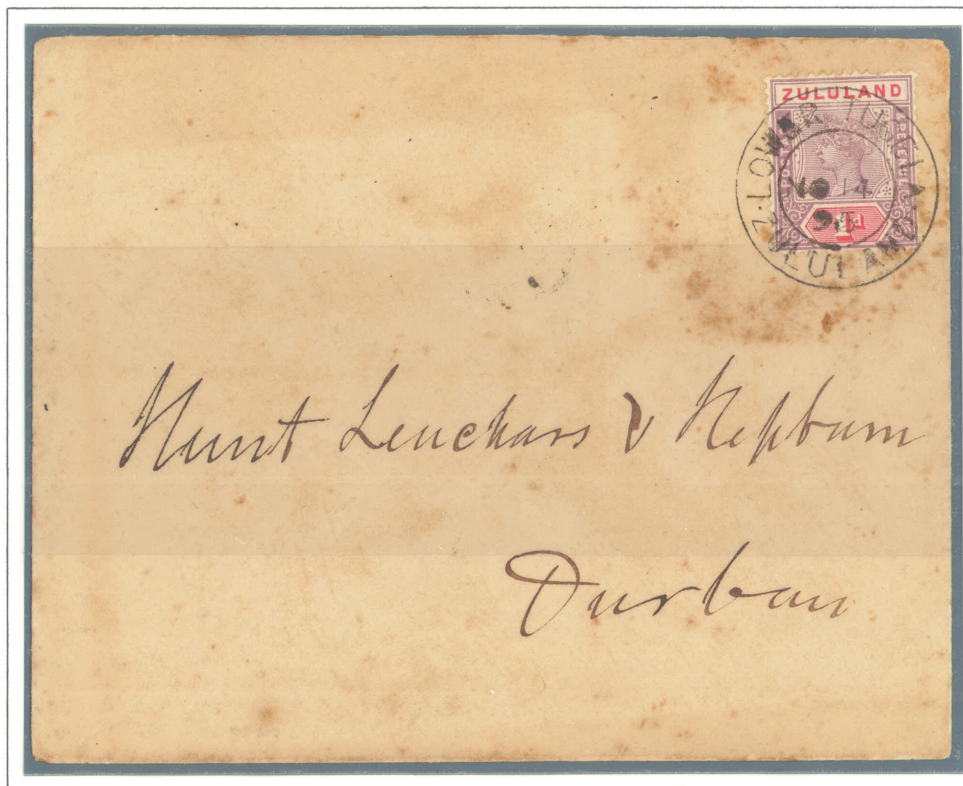 ZULULAND
LOWER TUGELA
ZULULAND
1d
Hunt Leuchars & Hepburn
Durban